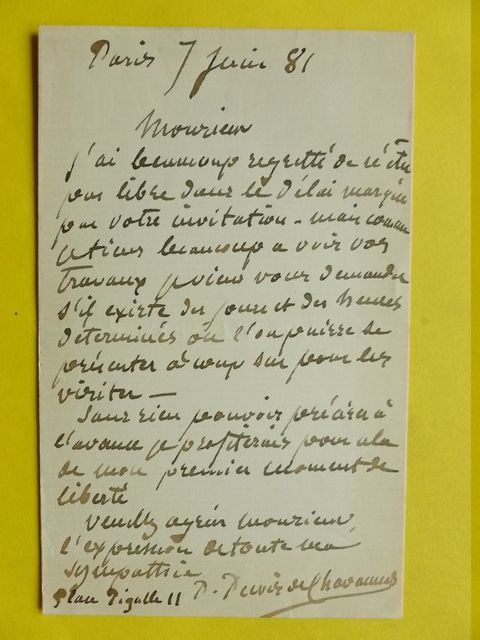 Paris 7 Juin 81
Monsieur
j'ai beaucoup regretté de n'être
pas libre dans le délai marqué
par votre invitation - mais comme
je tiens beaucoup a voir vos
travaux je viens vous demander
s'il existe des jours et des heures
déterminés où l'on puisse se
présenter à coup sur pour les
visiter —
Sans rien pouvoir préciser à
l'avance je profiterais pour cela
de mon premier moment de
liberté
Veuillez agréer monsieur
l'expression de toute ma
sympathie
P. Puvis de Chavannes
Place Pigalle 11